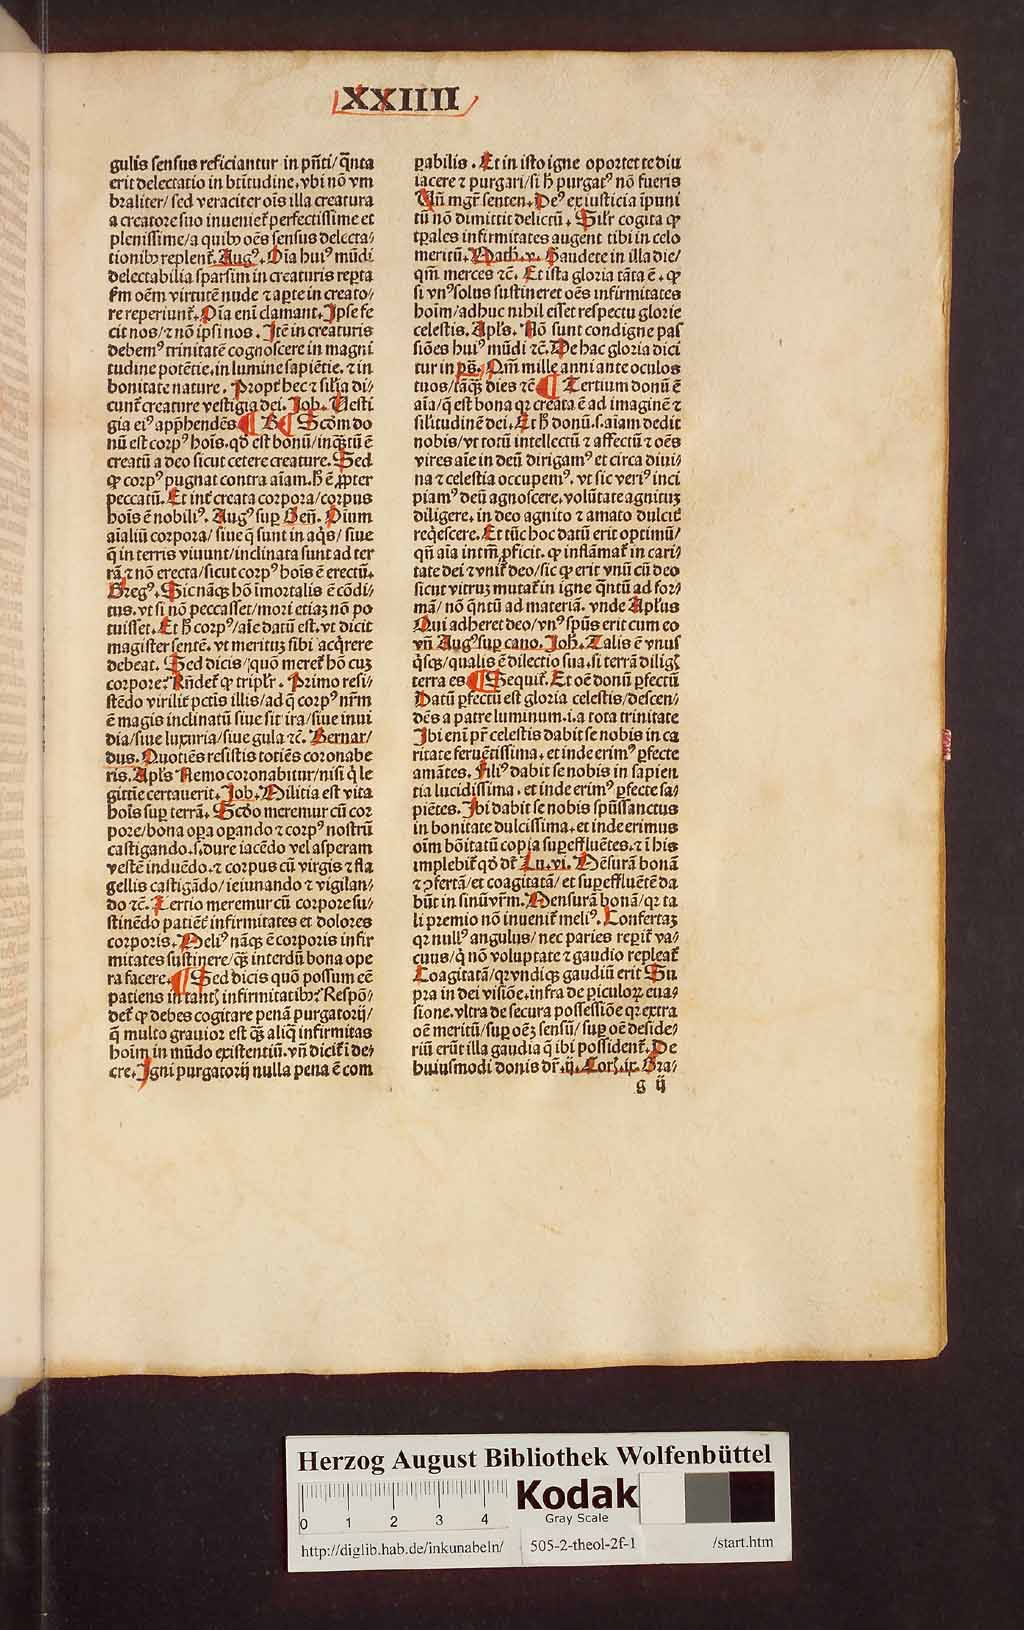 XXIIII
gulis sensus reficiantur in pn̄ti/ q̄nta
erit delectatio in btītudine. vbi nō vm
braliter/ sed veraciter oīs illa creatura
a creatore suo inueniet᷑ perfectissime et
plenissime/ a quibꝰ oēs sensus delecta/
tionibꝰ replent᷑. Augꝰ. Oīa huiꝰ mūdi
delectabilia sparsim in creaturis repta
fm oēm virtutē nude ⁊ apte in creato/
re reperiunt᷑. Oīa enī clamant. Ipse fe
cit nos/ ⁊ nō ipsi nos. Itē in creaturis
debemꝰ trinitatē cognoscere in magni
tudine potētie. in lumine sapiētie. ⁊ in
bonitate nature. Propt᷑ hec ⁊ silīa di/
cunt᷑ creature vestigia dei. Job. Uesti
gia eiꝰ app̄hendēs ¶ B ¶ Scd̄m do
nū est corpꝰ hoīs. qd̄ est bonū/ inꝙ̄tū ē
creatū a deo sicut cetere creature. Sed
ꝙ corpꝰ pugnat contra aīam. h̄ ē ꝓpter
peccatū. Et int᷑ creata corpora/ corpus
hoīs ē nobiliꝰ. Augꝰ suꝑ Gen̄. Oīum
aīaliū corpora/ siue q̄ sunt in aq̄s/ siue
q̄ in terris viuunt/ inclinata sunt ad ter
rā ⁊ nō erecta/ sicut corpꝰ hoīs ē erectū.
Gregꝰ. Sic nāꝙ hō īmortalis ē cōdi/
tus. vt si nō peccasset/ mori etiaꝫ nō po
tuisset. Et h̄ corpꝰ/ aīe datū est. vt dicit
magister sentē. vt merituꝫ sibi acq̄rere
debeat. Sed dicis/ quō meret᷑ hō cuꝫ
corpore? Rn̄det᷑ ꝙ tripłr. Primo resi/
stēdo virilit᷑ pctīs illis/ ad q̄ corpꝰ nr̄m
ē magis inclinatū siue sit ira/ siue inui
dia/ siue luxuria/ siue gula ⁊c̄. Bernar/
dus. Quotiēs resistis totiēs coronabe
ris. Apłs Nemo coronabitur/ nisi q̄ le
gittīe certauerit. Job. Militia est vita
hoīs suꝑ terrā. Scd̄o meremur cū cor
pore/ bona oꝑa oꝑando ⁊ corpꝰ nostrū
castigando. s. dure iacēdo vel asperam
vestē induēdo. ⁊ corpus cū virgis ⁊ fla
gellis castigādo/ ieiunando ⁊ vigilan/
do ⁊c̄. Tertio meremur cū corpore su/
stinēdo patiēt᷑ infirmitates et dolores
corporis. Meliꝰ nāꝙ ē corporis infir
mitates sustinere/ ꝙ̄ interdū bona ope
ra facere. ¶ Sed dicis quō possum eē
patiens in tantꝭ infirmitatibꝰ? Respō/
det᷑ ꝙ debes cogitare penā purgatorij/
q̄ multo grauior est ꝙ̄ aliq̄ infirmitas
hoīm in mūdo existentiū. vn̄ dicit᷑ i de/
cre. Igni purgatorij nulla pena ē com
ꝑabilis. Et in isto igne oportet te diu
iacere ⁊ purgari/ si h̄ purgatꝰ nō fueris
Un̄ mgr̄ senten. Deꝰ ex iusticia īpuni
tū nō dimittit delictū. Siłr cogita ꝙ
tꝑales infirmitates augent tibi in celo
meritū. Math. v. Gaudete in illa die/
qm̄ merces ⁊c̄. Et ista gloria tāta ē. ꝙ
si vnꝰ solus sustineret oēs infirmitates
hoīm/ adhuc nihil esset respectu glorie
celestis. Apłs. Nō sunt condigne pas
siōes huiꝰ mūdi ⁊c̄. De hac gloria dici
tur in ps̄. Qm̄ mille anni ante oculos
tuos/ tāꝙ̄ dies ⁊c̄ ¶ Tertium donū ē
aīa/ q̄ est bona qꝛ creata ē ad imaginē ⁊
silitudinē dei. Et h̄ donū. s. aīam dedit
nobis/ vt totū intellectū ⁊ affectū ⁊ oēs
vires aīe in deū dirigamꝰ et circa diui/
na ⁊ celestia occupemꝰ. vt sic veriꝰ inci
piamꝰ deū agnoscere. volūtate agnituꝫ
diligere. in deo agnito ⁊ amato dulcit᷑
req̄escere. Et tūc hoc datū erit optimū/
qn̄ aīa intm̄ ꝓficit. ꝙ inflāmat᷑ in cari/
tate dei ⁊ vnit᷑ deo/ sic ꝙ erit vnū cū deo
sicut vitruꝫ mutat᷑ in igne q̄ntū ad for/
mā/ nō q̄ntū ad materiā. vnde Apłus
Qui adheret deo/ vnꝰ spūs erit cum eo
vn̄ Augꝰ suꝑ cano. Joh̄. Talis ē vnus
q̄sꝙ/ qualis ē dilectio sua. si terrā diligꝭ
terra es ¶ Sequit᷑. Et oē donū ꝑfectū
Datū ꝑfectū est gloria celestis/ descen/
dēs a patre luminum. i. a tota trinitate
Ibi enī pr̄ celestis dabit se nobis in ca
ritate feruētissima. et inde erimꝰ ꝑfecte
amātes. Filiꝰ dabit se nobis in sapien
tia lucidissima. et inde erimꝰ ꝑfecte sa/
piētes. Ibi dabit se nobis spūssanctus
in bonitate dulcissima. et inde erimus
oīm bōitatū copia suꝑeffluētes. ⁊ ī his
implebit᷑ qd̄ dr̄ Lu. vi. Mēsurā bonā
⁊ ꝯfertā/ et coagitatā/ et suꝑeffluētē da
būt in sinū vr̄m. Mensurā bonā/ qꝛ ta
li premio nō inuenit᷑ meliꝰ. Confertaꝫ
qꝛ nullꝰ angulus/ nec paries reꝑit᷑ va/
cuus/ q̄ nō voluptate ⁊ gaudio repleat᷑
Coagitatā/ qꝛ vndiꝙ gaudiū erit Su
pra in dei visiōe. infra de piculoꝝ eua/
sione. vltra de secura possessiōe qꝛ extra
oē meritū/ suꝑ oēꝫ sensū/ suꝑ oē deside/
riū erūt illa gaudia q̄ ibi possident᷑. De
huiusmodi donis dr̄. ij. Corꝭ. ix. Gra/
g ij
Herzog August Bibliothek Wolfenbüttel
0 1 2 3 4
Kodak
Gray Scale
http://diglib.hab.de/inkunabeln/ 505-2-theol-2f-1 /start.htm